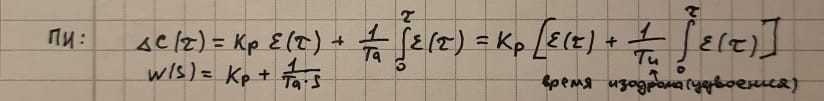 ПИ: ΔC(τ) = Kp ε(τ) + 1/Ta ∫₀^τ ε(τ) = Kp [ε(τ) + 1/Tи ∫₀^τ ε(τ)]
W(s) = Kp + 1/(Ta·s)
время изодрома (удвоения)